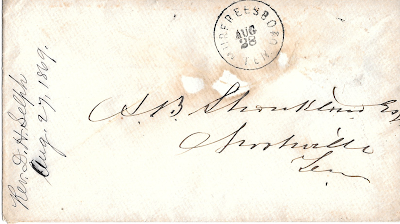 MURFREESBORO
AUG
28
TEN
Rev. D. H. Selph
Aug. 27, 1869.
A. B. Shankland Esq
Nashville
Ten